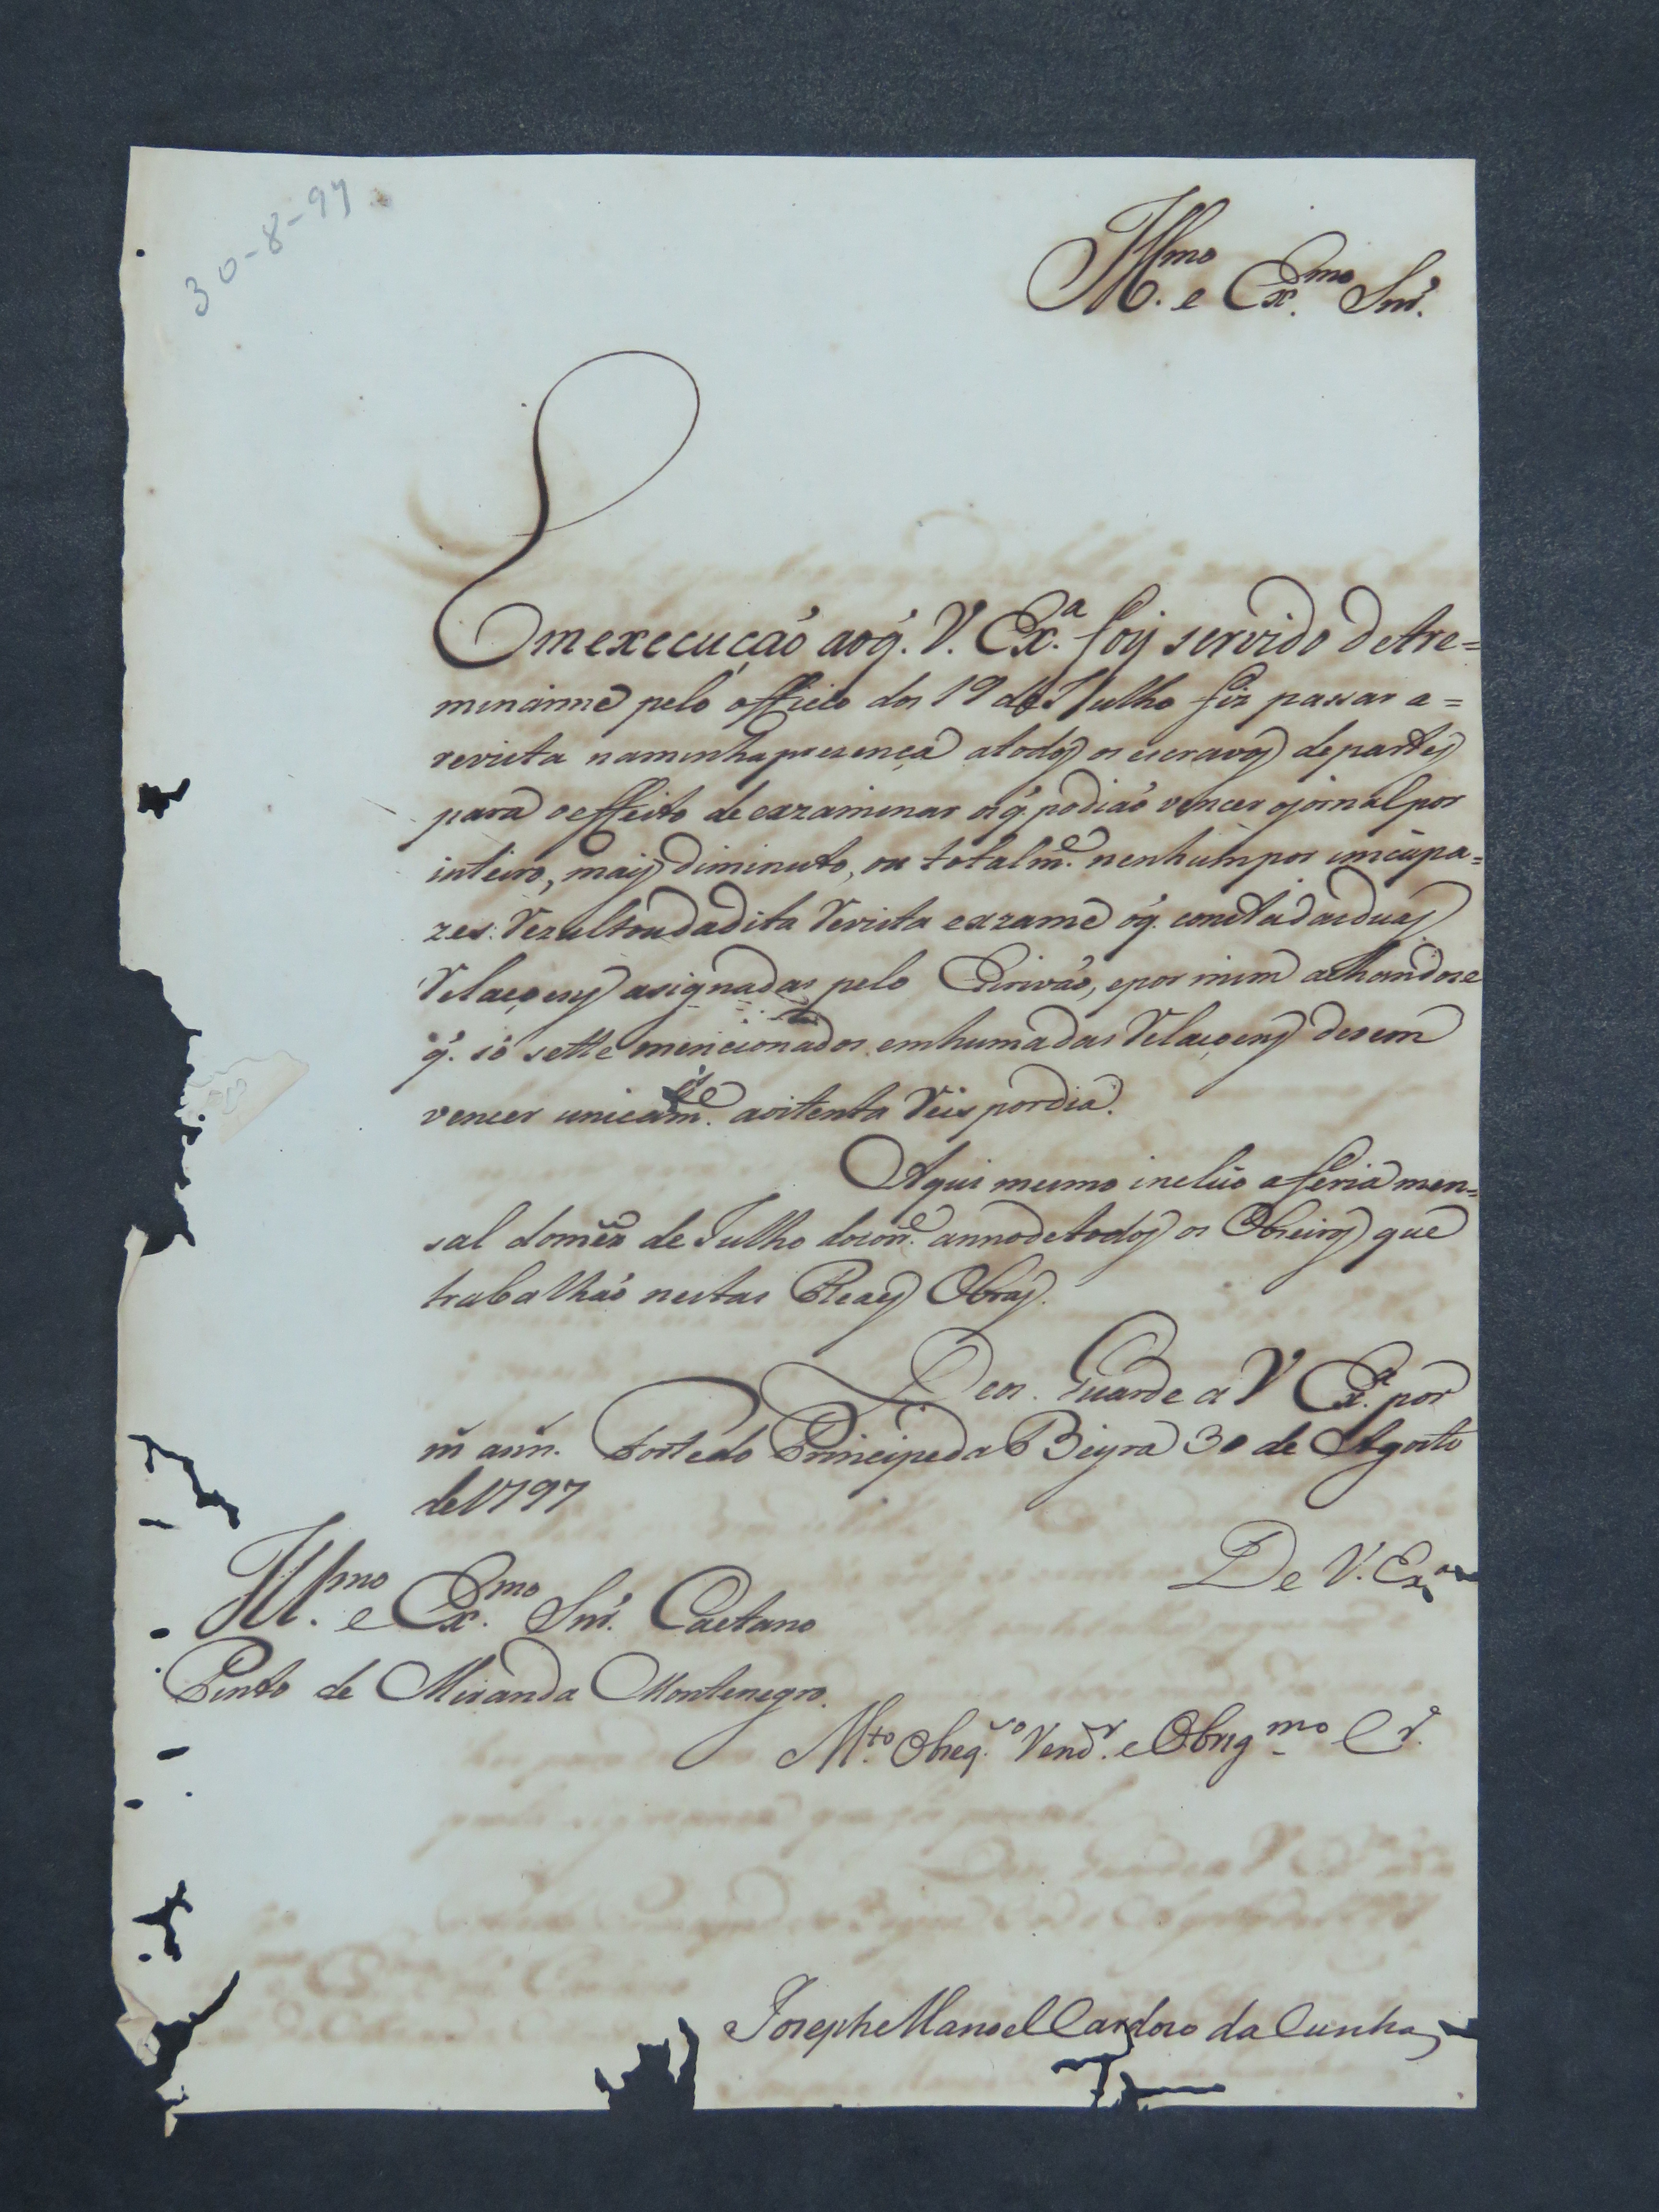 30-8-97
Ill.mo e Ex.mo Snr.
Em execução ao q. V. Ex.a foy servido detre=
minarme pelo officio dos 19 de Julho fiz passar a=
revista na minha presença a todos os escravos de partes
para o effeito de exzaminar os q. podiaõ vencer o jornal por
inteiro, mais diminuto, ou totalm.e nenhum por incapa=
zes. Rezultou da dita Revista e exzame o q. consta das duas
Relaçoens asignadas pelo Escrivaõ, e por mim achandose
q. só sette mencionados em huma das Relaçoens devem
vencer unicam.e a oitenta Reis por dia.
Aqui mesmo incluo a feria men=
sal do mez de Julho do corr.e anno de todos os Obreiros que
trabalhaõ nestas Reaes Obras.
Deos Guarde a V Ex.a por
m.s ann. Forte do Principe da Beyra 30 de Agosto
de 1797
De V. Ex.a
Ill.mo e Ex.mo Snr. Caetano
Pinto de Miranda Montenegro.
M.to Obseq.ro Vend.r e Obrig.mo Cr.
Joseph Manoel Cardoso da Cunha